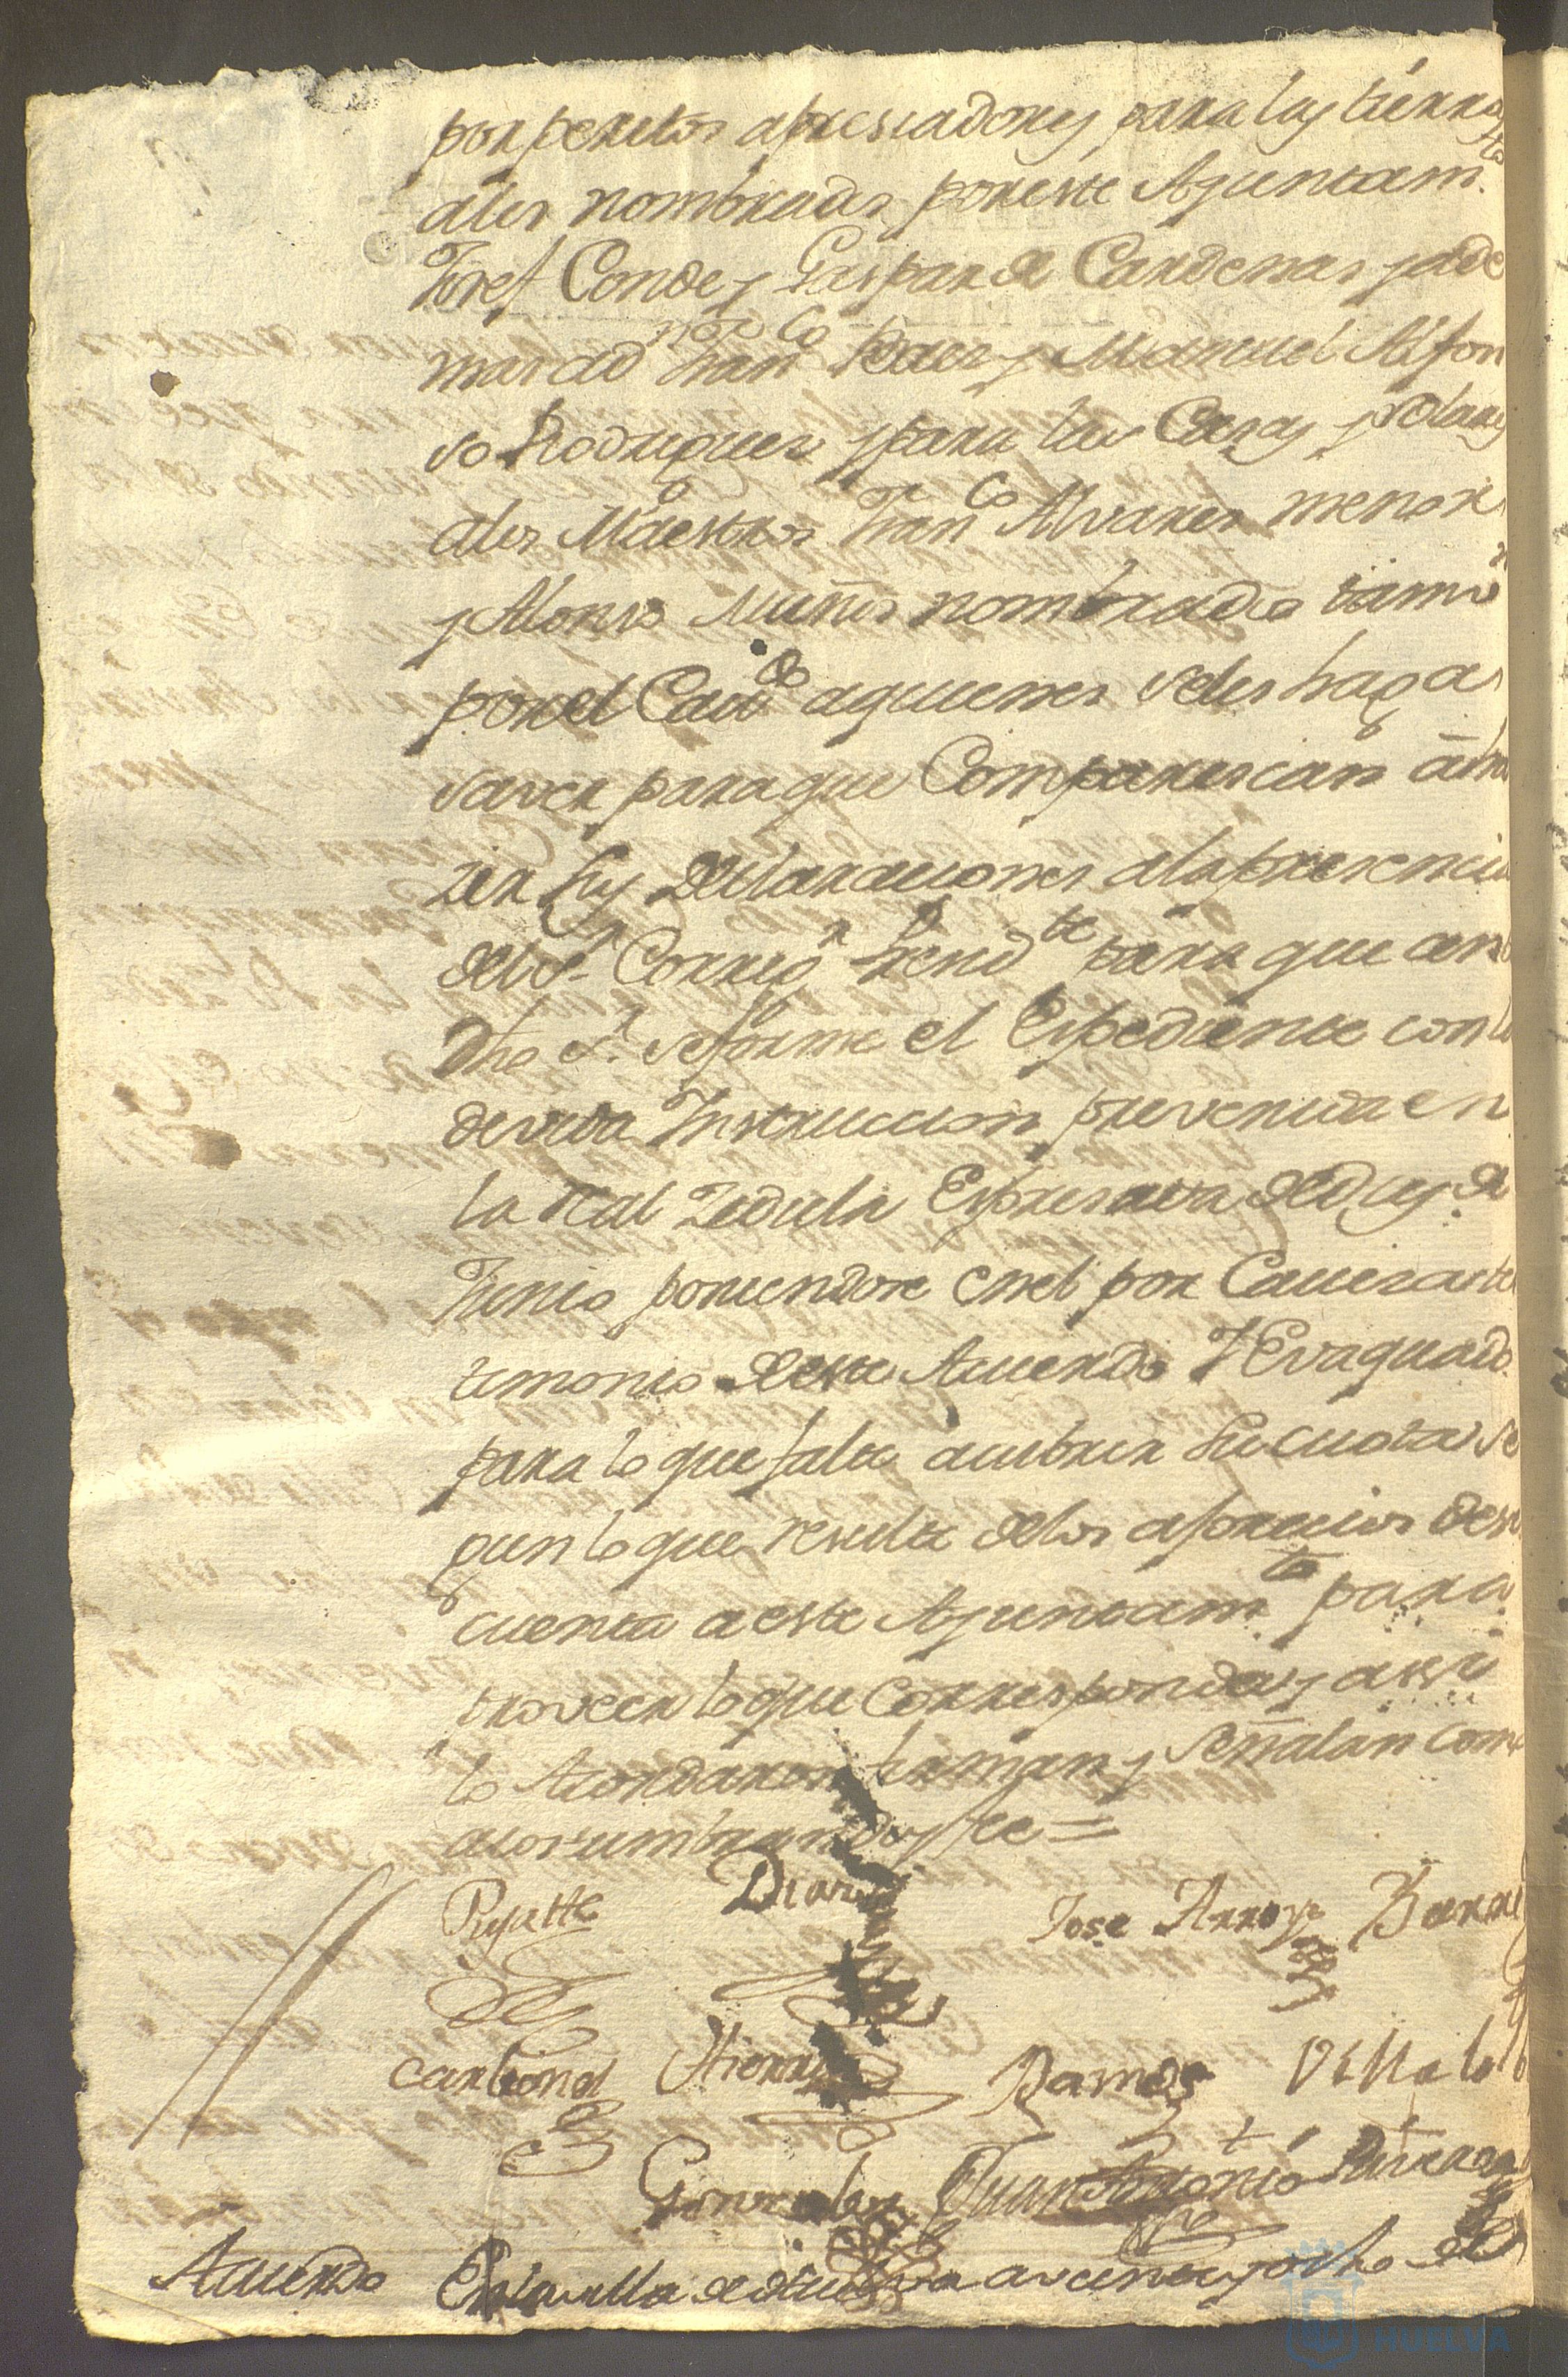 por peritos apresiadores para las tierras
a los nombrados por este Ayuntam.to
Josef Conde y Gaspar de Cardenas y ade
mas a D.n Fran.co Baez y Manuel Alfon
so Rodriguez y para las Casas y solares
a los Maestros Fran.co Alvarez menor
y Alonso Muñiz nombrados tamvn
por el Cavdo a quienes se les haga
saver para que Comparescan a ha
zer sus declaraciones a la presencia
del S.r Correg.r Yntend.te para que ante
dho S.r se forme el Espediente con la
devida Ynstruccion prevenida en
la Real Zedula Espresava de diez de
Junio poniendose en el por Caveza tes
timonio de este Acuerdo Y Evaquado
para lo que falta a cubrir su cuota se
gun lo que resulte de los aprecios dese
cuenta a este Ayuntam.to para
proveer lo que corresponda y assi
lo Acordaron firman y señalan como
acostumbran doy fee =
Diaz
Jose Arroyo Barra
Cartiond Ramos Villalo
Gonzales Juan Antonio
Acuerdo En la villa de Huelva a veinte y ocho de
HUELVA